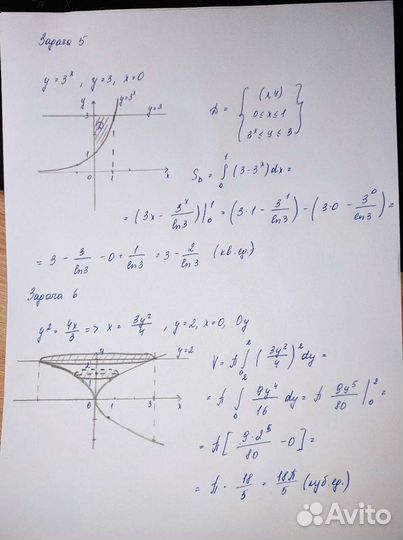 Задача 5
y = 3^x , y = 3, x = 0
y
y=3^x
y=3
3
D
1
0
1
x
D = { (x,y)
0 ≤ x ≤ 1
3^x ≤ y ≤ 3 }
S_D = ∫_0^1 (3 - 3^x) dx =
= (3x - 3^x/ln3) |_0^1 = (3·1 - 3^1/ln3) - (3·0 - 3^0/ln3) =
= 3 - 3/ln3 - 0 + 1/ln3 = 3 - 2/ln3 (кв.ед.)
Задача 6
y² = 4x/3 => x = 3y²/4 , y=2, x=0, Oy
y
y=2
0
1
3
x
V = π ∫_0^2 (3y²/4)² dy =
= π ∫_0^2 9y⁴/16 dy = π 9y⁵/80 |_0^2 =
= π [ 9·2⁵/80 - 0 ] =
= π · 18/5 = 18π/5 (куб.ед.)
Avito